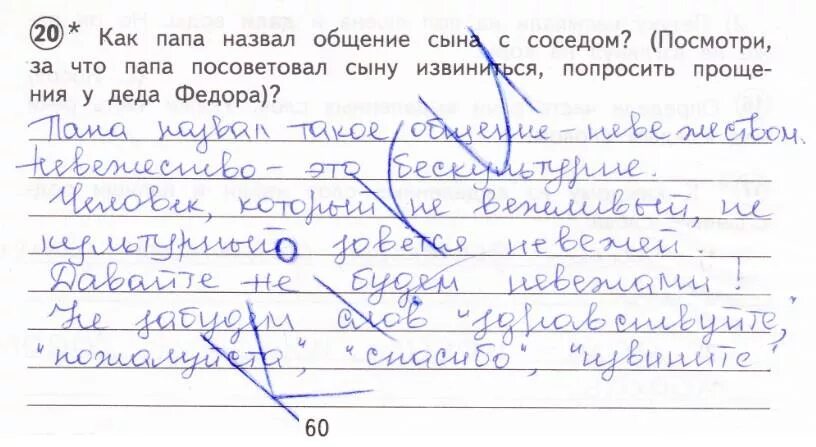 20* Как папа назвал общение сына с соседом? (Посмотри,
за что папа посоветовал сыну извиниться, попросить проще-
ния у деда Федора)?
Папа назвал такое общение – невежеством.
Невежество – это бескультурие.
Человек, который не вежливый, не
культурный зовётся невежей.
Давайте не будем невежами!
Не забудем слов "здравствуйте",
"пожалуйста", "спасибо", "извините"
60